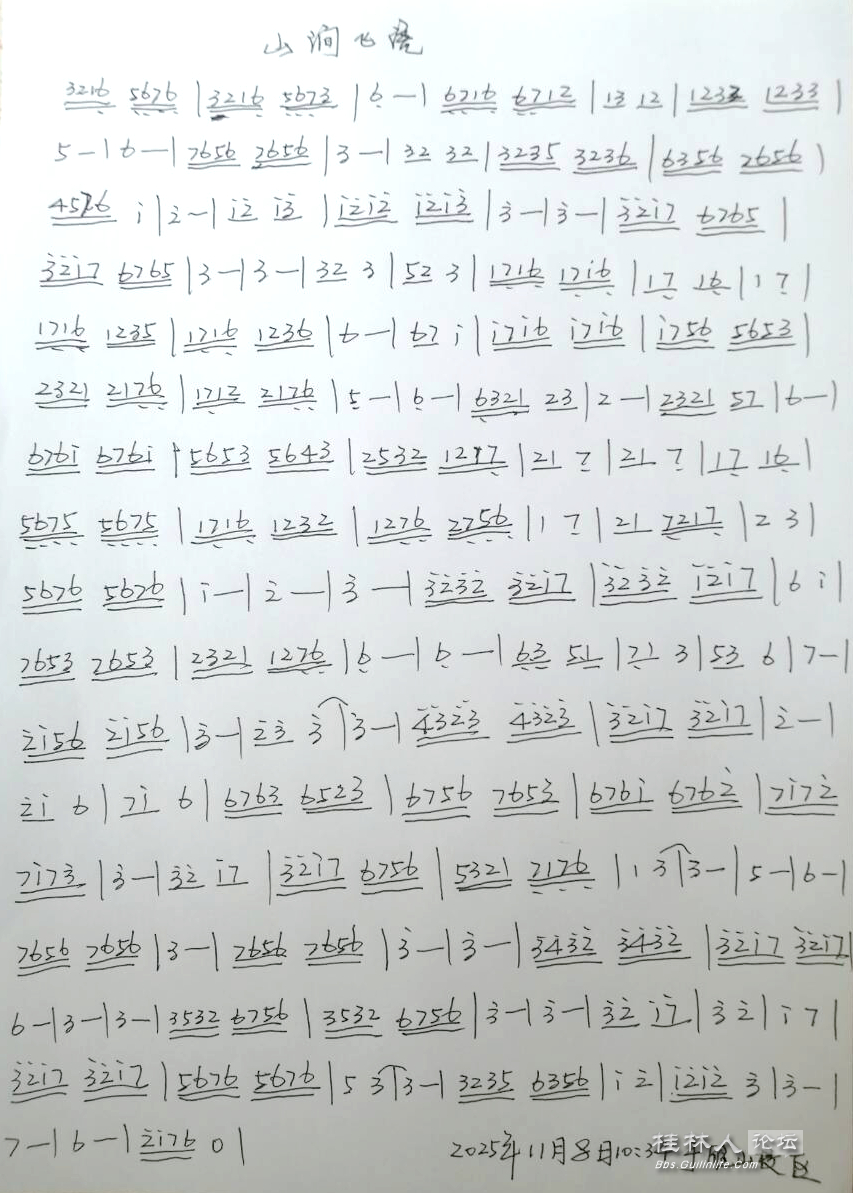 山涧飞瀑
3216 5676 | 3216 5673 | 6 — | 6716 6712 | 13 12 | 1233 1233 |
5 — | 6 — | 7656 7656 | 3 — | 32 32 | 3235 3236 | 6356 7656 |
4576 i | 2̇ — | i2̇ i3̇ | i2̇i2̇ i2̇i3̇ | 3̇ — | 3̇ — | 3̇2̇i7 6765 |
3̇2̇i7 6765 | 3 — | 3 — | 32 3 | 52 3 | 1716 1716 | 17 16 | 1 7 |
1716 1235 | 1716 1236 | 6 — | 67 i | i7i6 i7i6 | i756 5653 |
2321 2176 | 1712 2176 | 5 — | 6 — | 6321 23 | 2 — | 2321 57 | 6 — |
676i 676i | 5653 5643 | 2532 1217 | 21 7 | 21 7 | 17 16 |
5675 5675 | 1716 1232 | 1276 2756 | 1 7 | 21 7217 | 2 3 |
5676 5676 | i — | 2̇ — | 3̇ — | 3̇2̇3̇2̇ 3̇2̇i7 | 3̇2̇3̇2̇ i2̇i7 | 6 i |
7653 7653 | 2321 1276 | 6 — | 6 — | 63 51 | 71 3 | 53 6 | 7 — |
2̇i56 2̇i56 | 3̇ — | 2̇3̇ 3̇ | 3̇ — | 4̇3̇2̇3̇ 4̇3̇2̇3̇ | 3̇2̇i7 3̇2̇i7 | 2̇ — |
2̇i 6 | 7i 6 | 6763 6523 | 6756 7653 | 676i 6762̇ | 7i72̇
7i73̇ | 3̇ — | 3̇2̇ i7 | 3̇2̇i7 6756 | 5321 7176 | 1 3 | 3 — | 5 — | 6 — |
7656 7656 | 3 — | 7656 7656 | 3̇ — | 3̇ — | 3̇4̇3̇2̇ 3̇4̇3̇2̇ | 3̇2̇i7 3̇2̇i7 |
6 — | 3 — | 3 — | 3532 6756 | 3532 6756 | 3̇ — | 3̇ — | 3̇2̇ i7 | 3̇ 2̇ | i 7 |
3̇2̇i7 3̇2̇i7 | 5676 5676 | 5 3 | 3 — | 3235 6356 | i 2̇ | i2̇i2̇ 3̇ | 3̇ — |
7 — | 6 — | 2̇i76 0 |
2025年11月8日10:3
桂林人论坛
Bbs.Guilinlife.Com